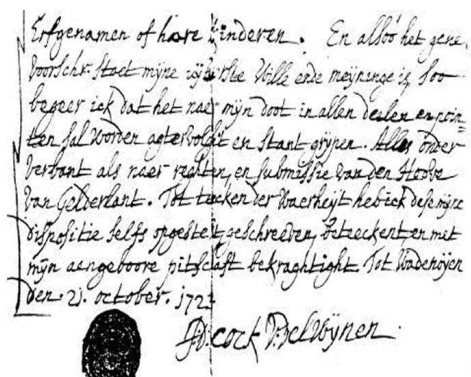 Erfgenamen of hare kinderen. En alsoo het gene
voorschr. staet mijne uijterste Wille ende meijninge is, soo
begeer ick dat het naer mijn doot in allen deelen en poin-
ten sal worden agtervolght en stant grijpen. Alles onder
verbant als naer rechten, en submissie van den Hoove
van Gelderlant. Tot teecken der Waerheijt heb ick dese mijne
dispositie selfs opgestelt, geschreeven, beteeckent, en met
mijn aengeboore pitschaft bekraghtight. Tot Wadenoijen
den 21. october. 172
Cock v. Delwijnen.